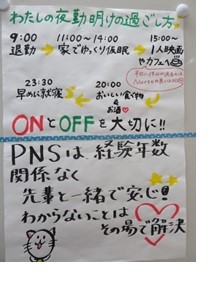 わたしの夜勤明けの過ごし方
9:00 11:00〜14:00 15:00〜
退勤 家でゆっくり仮眠 1人映画
やカフェ
23:30 20:00
早めに就寝 おいしい食べ物
&お酒
ONとOFFを大切に!!
PNSは、経験年数
関係なく
先輩と一緒で安心!
わからないことは
その場で解決